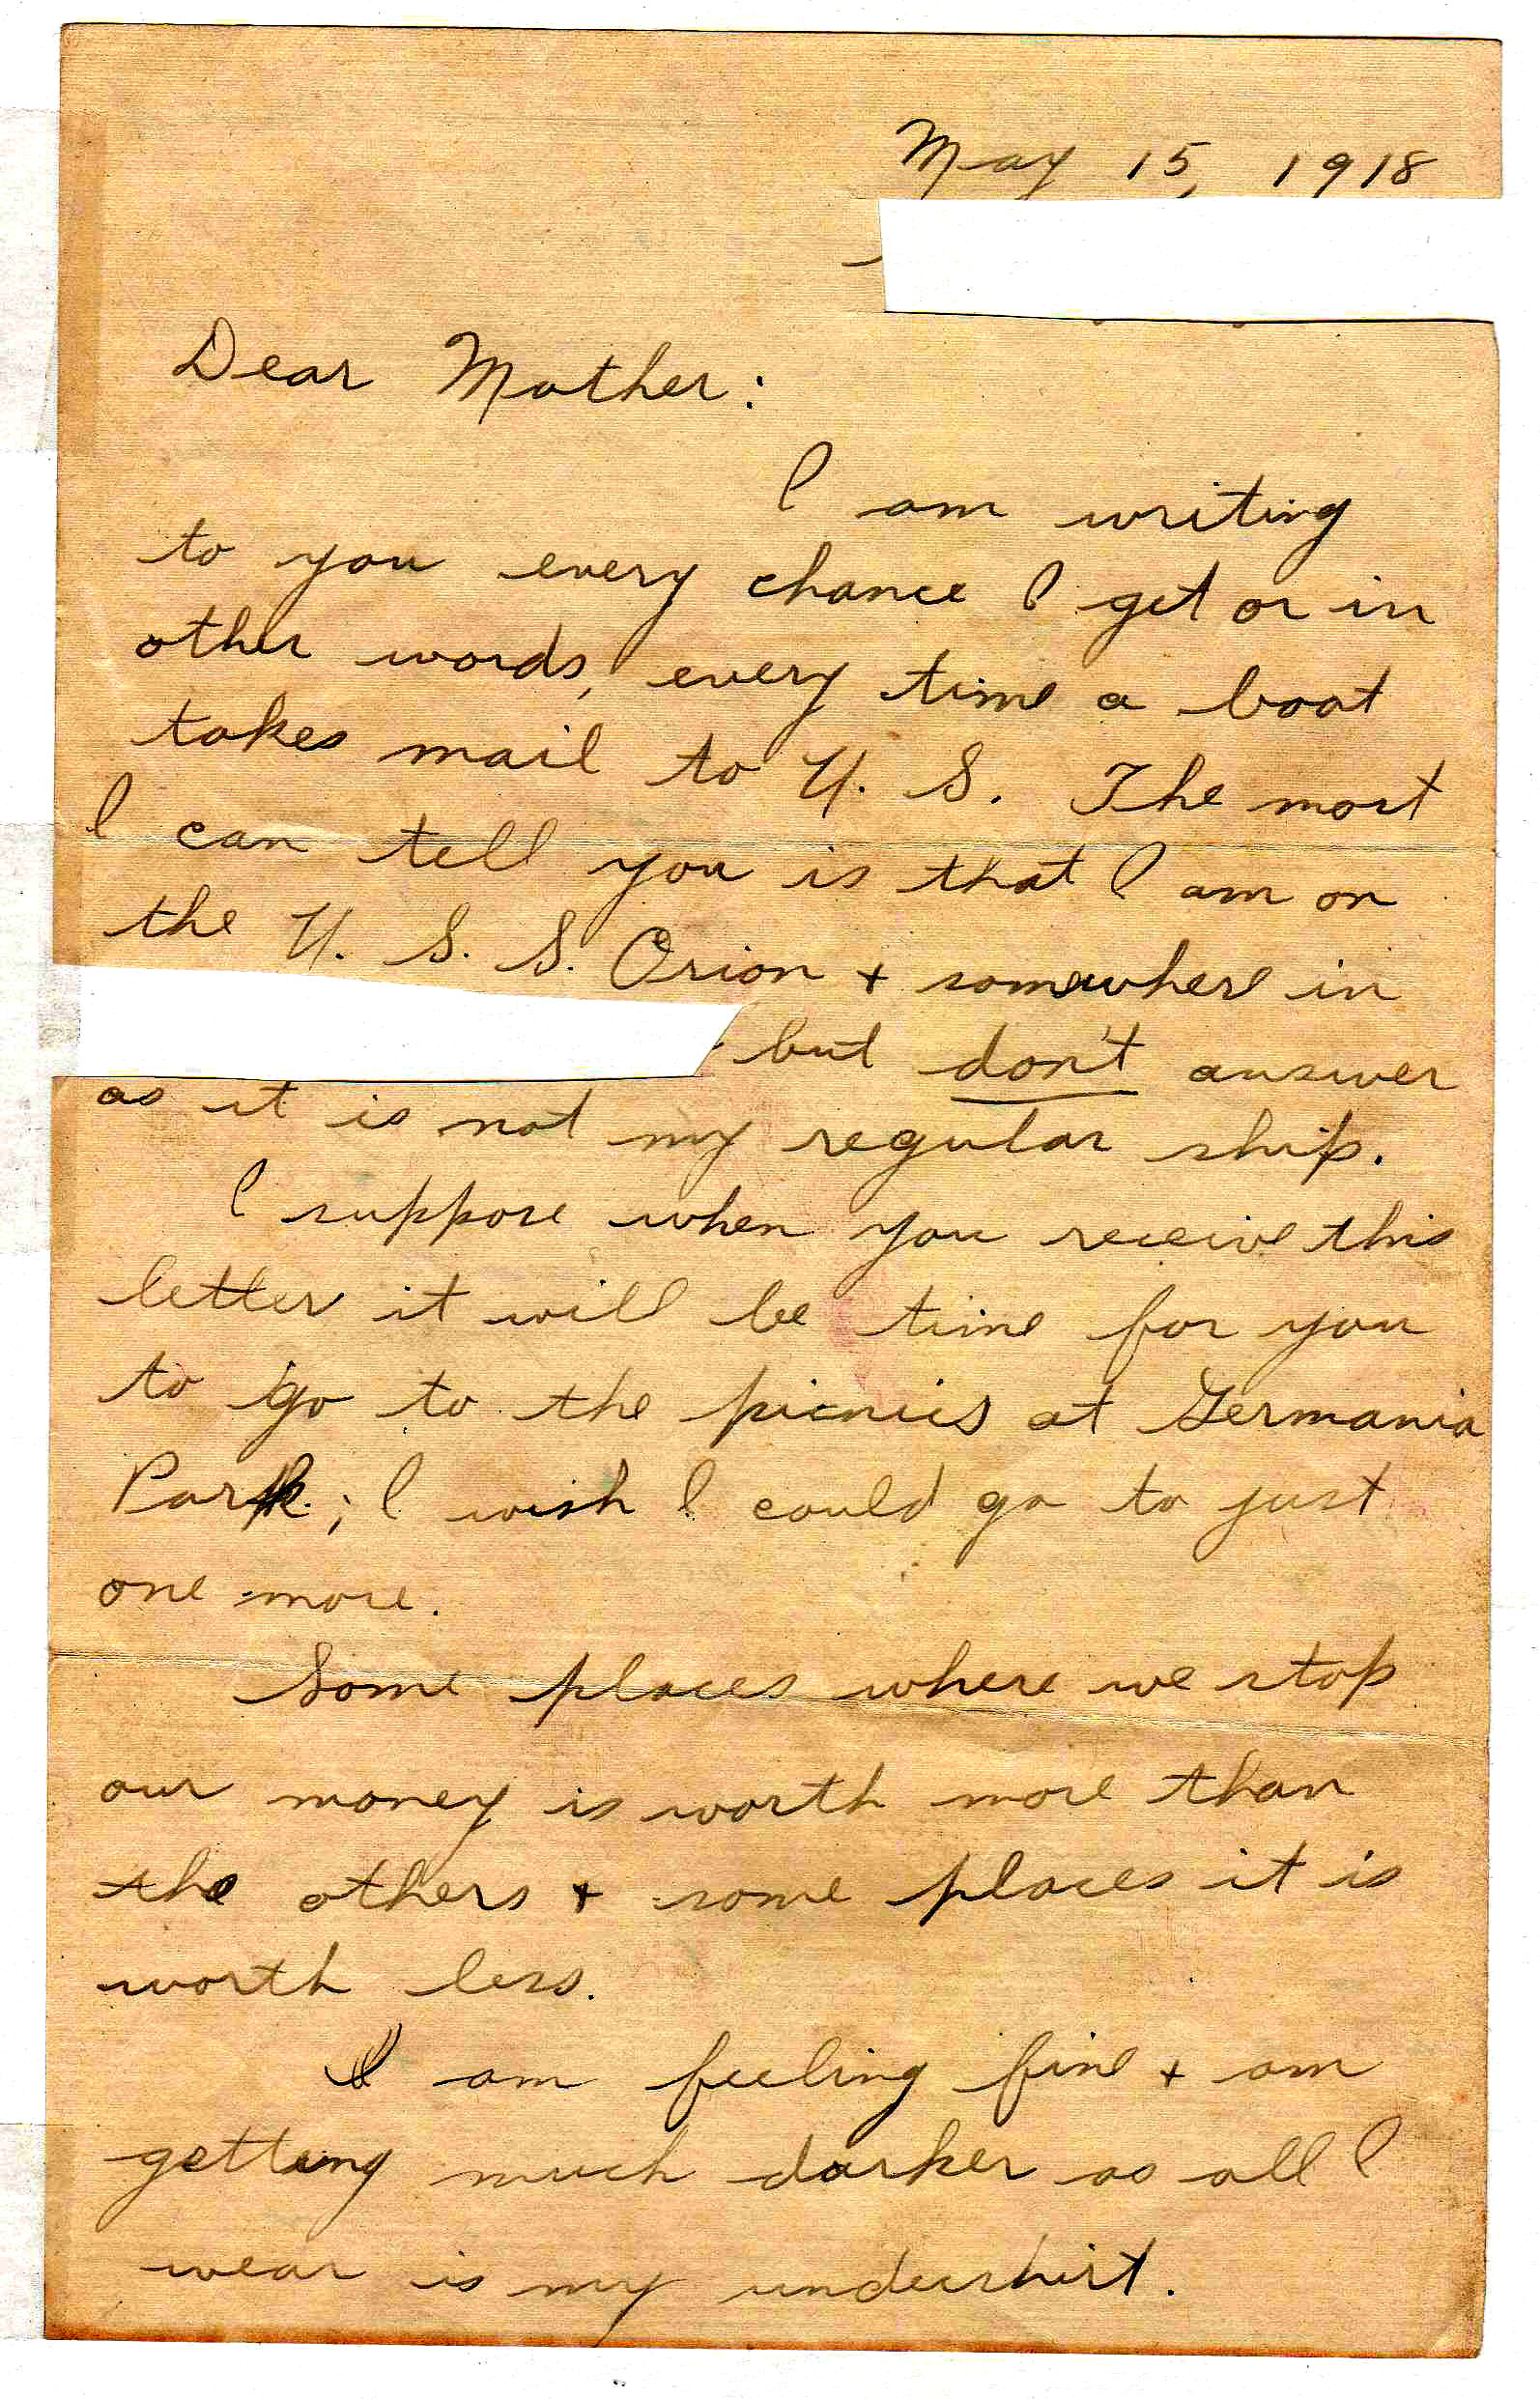 May 15, 1918
Dear Mother:
I am writing
to you every chance I get or in
other words, every time a boat
takes mail to U. S. The most
I can tell you is that I am on
the U. S. S. Orion + somewhere in
but don't answer
as it is not my regular ship.
I suppose when you receive this
letter it will be time for you
to go to the picnics at Germania
Park; I wish I could go to just
one more.
Some places where we stop
our money is worth more than
the others + some places it is
worth less.
I am feeling fine + am
getting much darker as all I
wear is my undershirt.